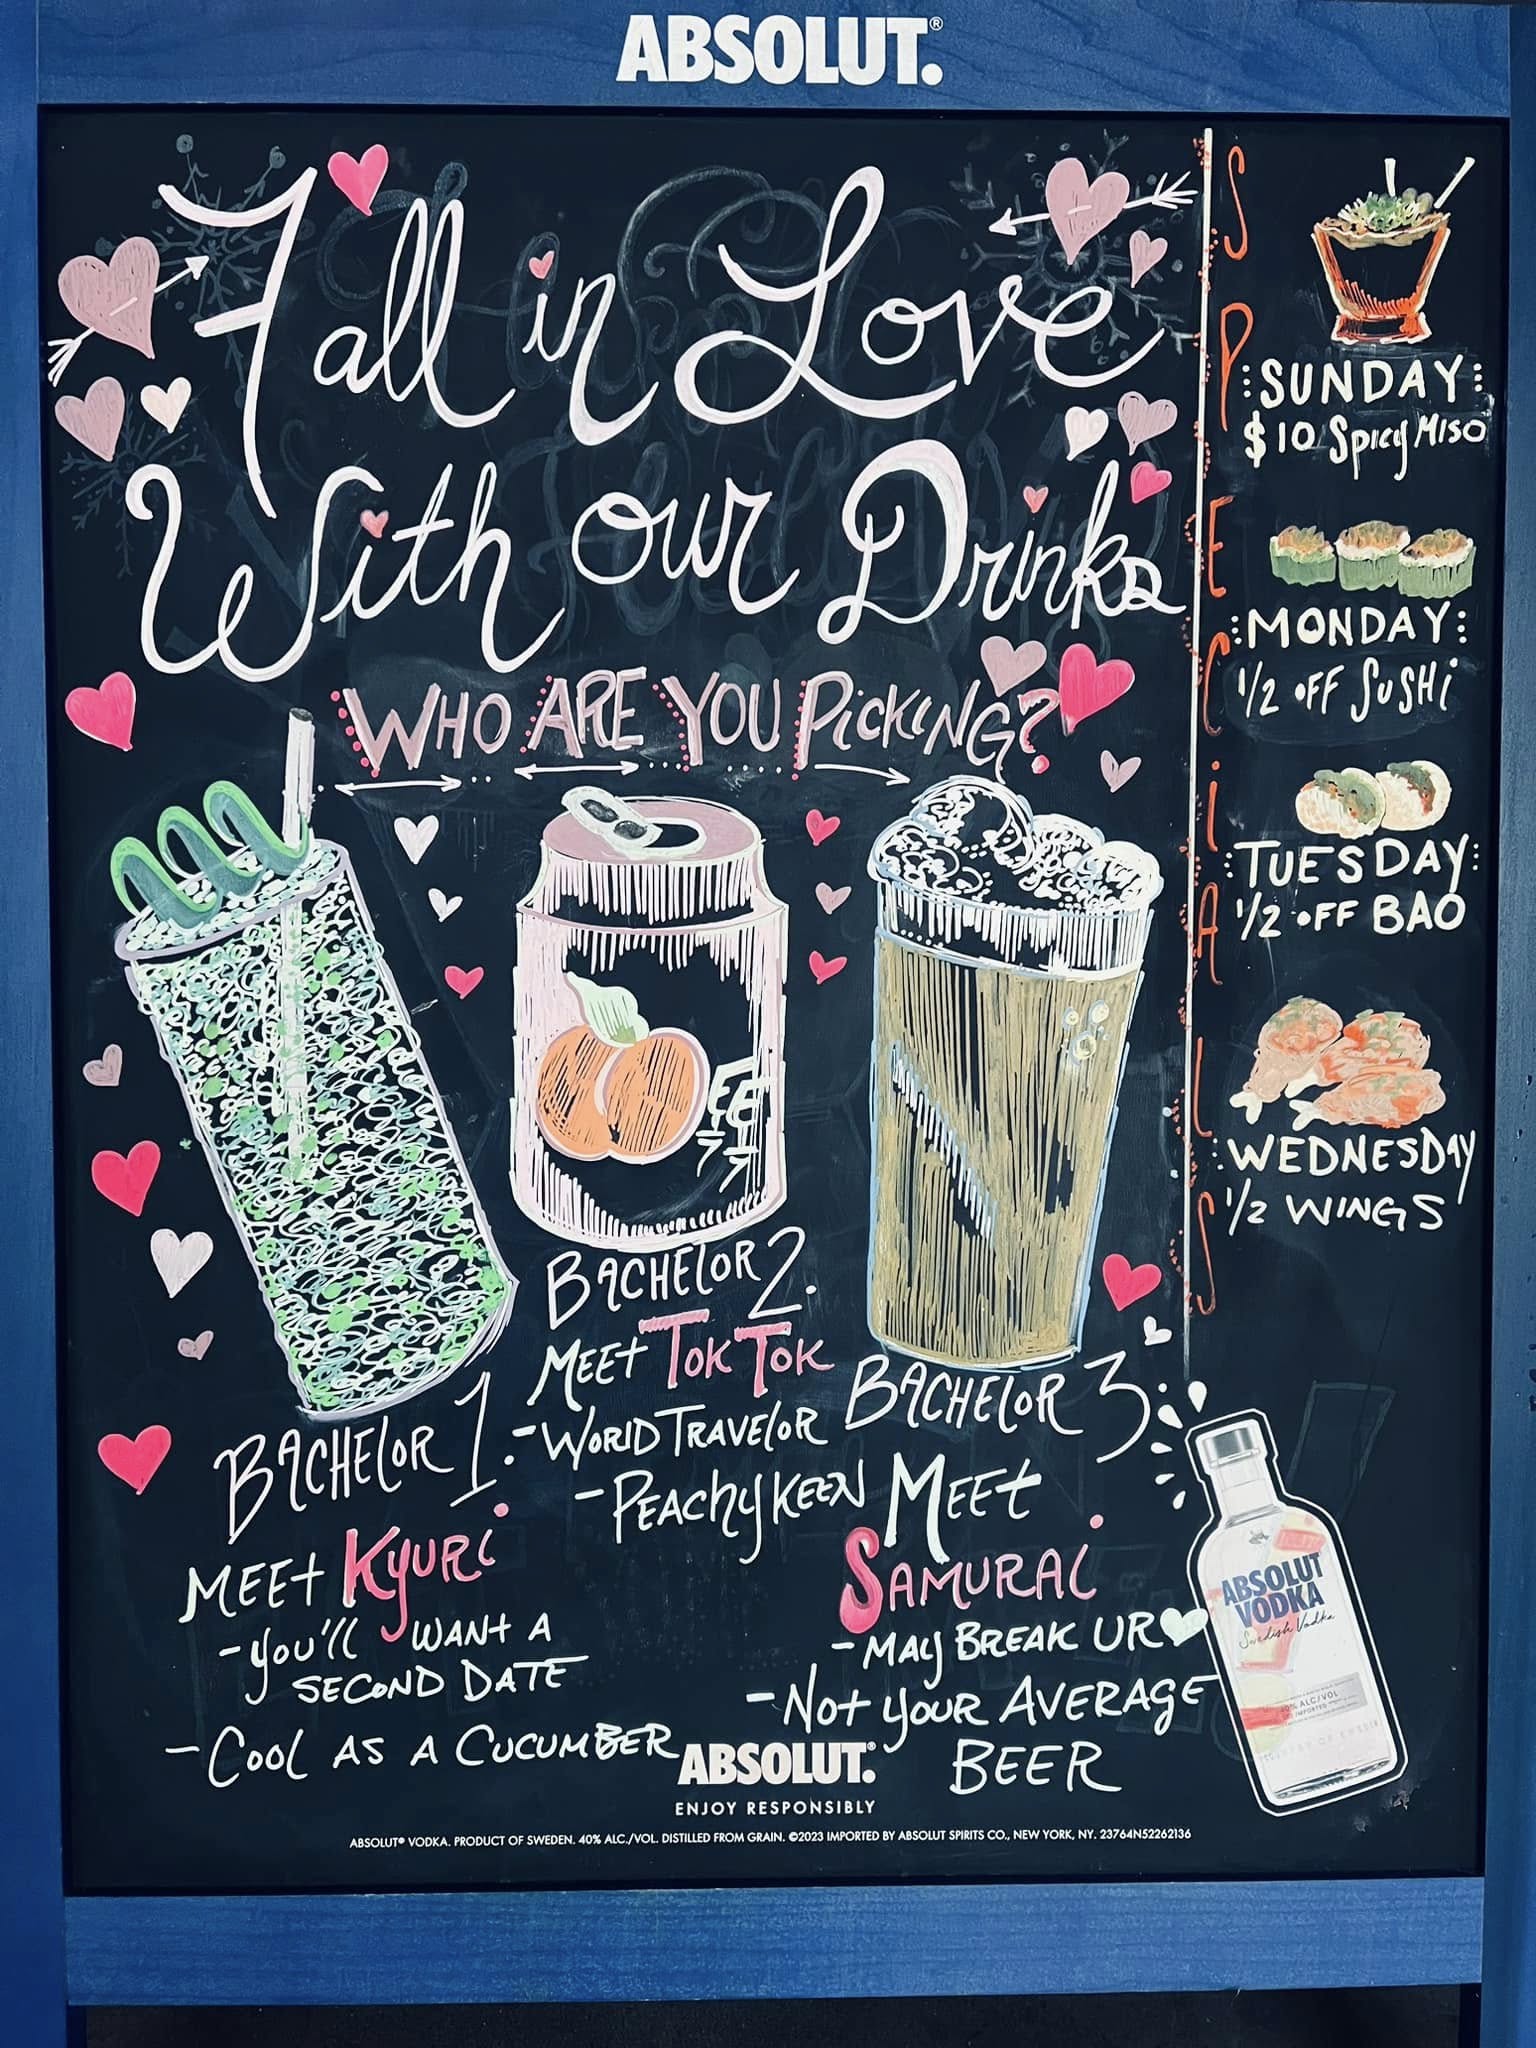 ABSOLUT.®
Fall in Love
With our Drinks
WHO ARE YOU PiCKiNG?
BACHELOR 1.
MEEt KYURi
-YOU'LL WANt A
SECOND DATE
- COOL AS A CUCUMBER
BACHELOR 2.
MEEt TOK TOK
-WORLD TRAVELOR
-PEACHY KEEN
BACHELOR 3.
MEEt
SAMURAi
-MAY BREAK UR
-NOt YOUR AVERAGE
BEER
SPECiALS
SUNDAY
$10 Spicy MISO
MONDAY
1/2 OFF SuSHi
TUESDAY
1/2 OFF BAO
WEDNESDAY
1/2 WINGS
ABSOLUT
VODKA
Swedish Vodka
ABSOLUT.®
ENJOY RESPONSIBLY
ABSOLUT® VODKA. PRODUCT OF SWEDEN. 40% ALC./VOL. DISTILLED FROM GRAIN. ©2023 IMPORTED BY ABSOLUT SPIRITS CO., NEW YORK, NY. 23764N52262136